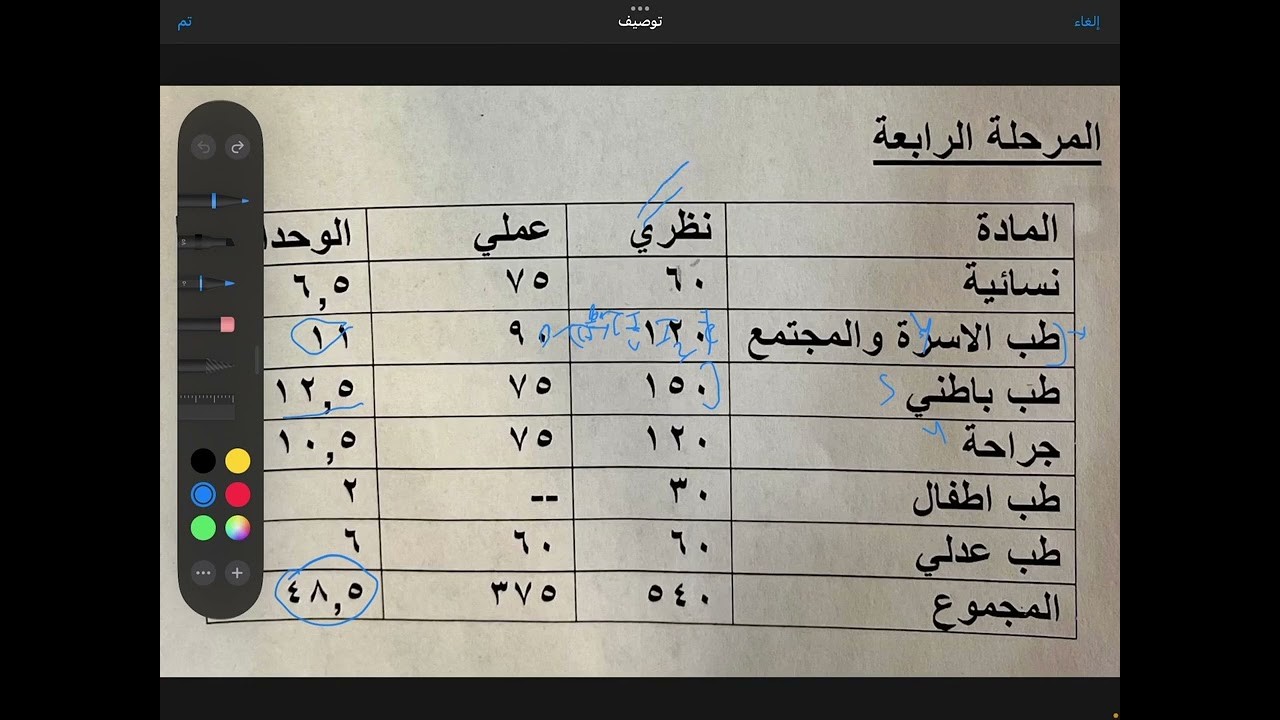 إلغاء توصيف تم
المرحلة الرابعة
المادة نظري عملي الوحدا
نسائية ٦٠ ٧٥ ٦,٥
طب الاسرة والمجتمع ١٢٠ ٩٠ ١١
طب باطني ١٥٠ ٧٥ ١٢,٥
جراحة ١٢٠ ٧٥ ١٠,٥
طب اطفال ٣٠ -- ٢
طب عدلي ٦٠ ٦٠ ٦
المجموع ٥٤٠ ٣٧٥ ٤٨,٥